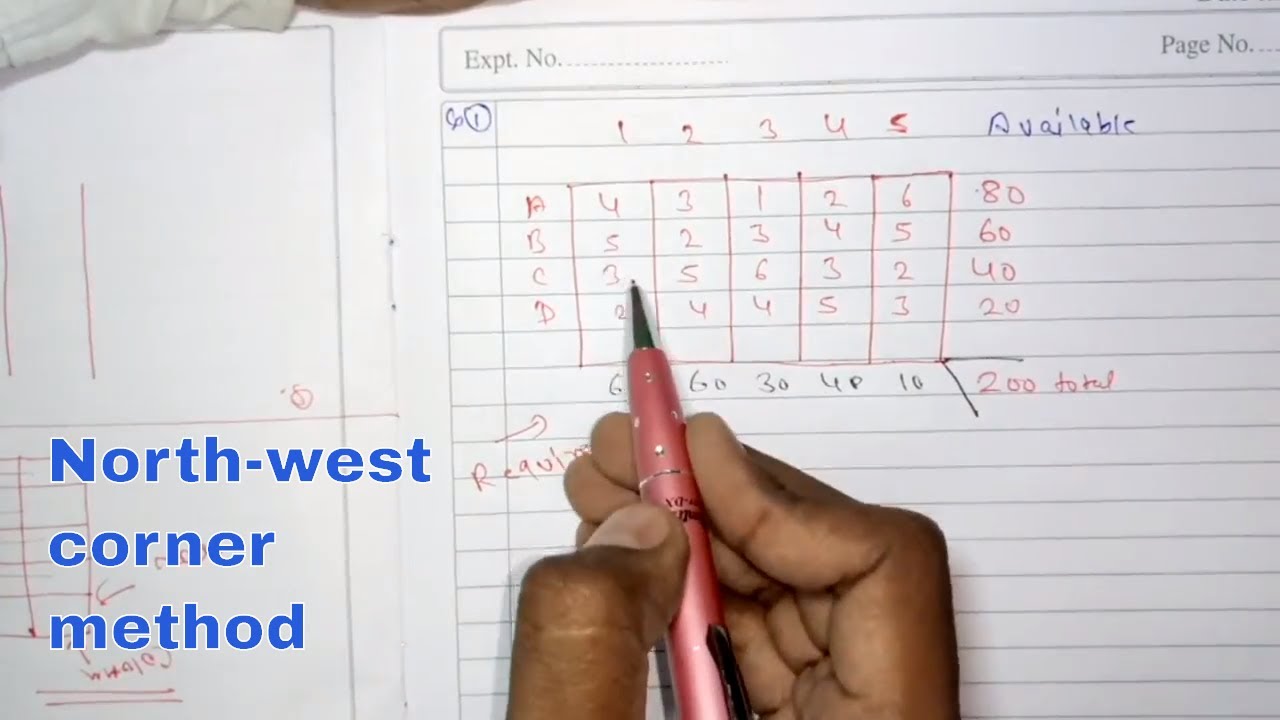 Date
Expt. No.
Page No.
Q 1
1 2 3 4 5 Available
A 4 3 1 2 6 80
B 5 2 3 4 5 60
C 3 5 6 3 2 40
D 2 4 4 5 3 20
60 30 40 10 200 total
North-west
corner
method
Column